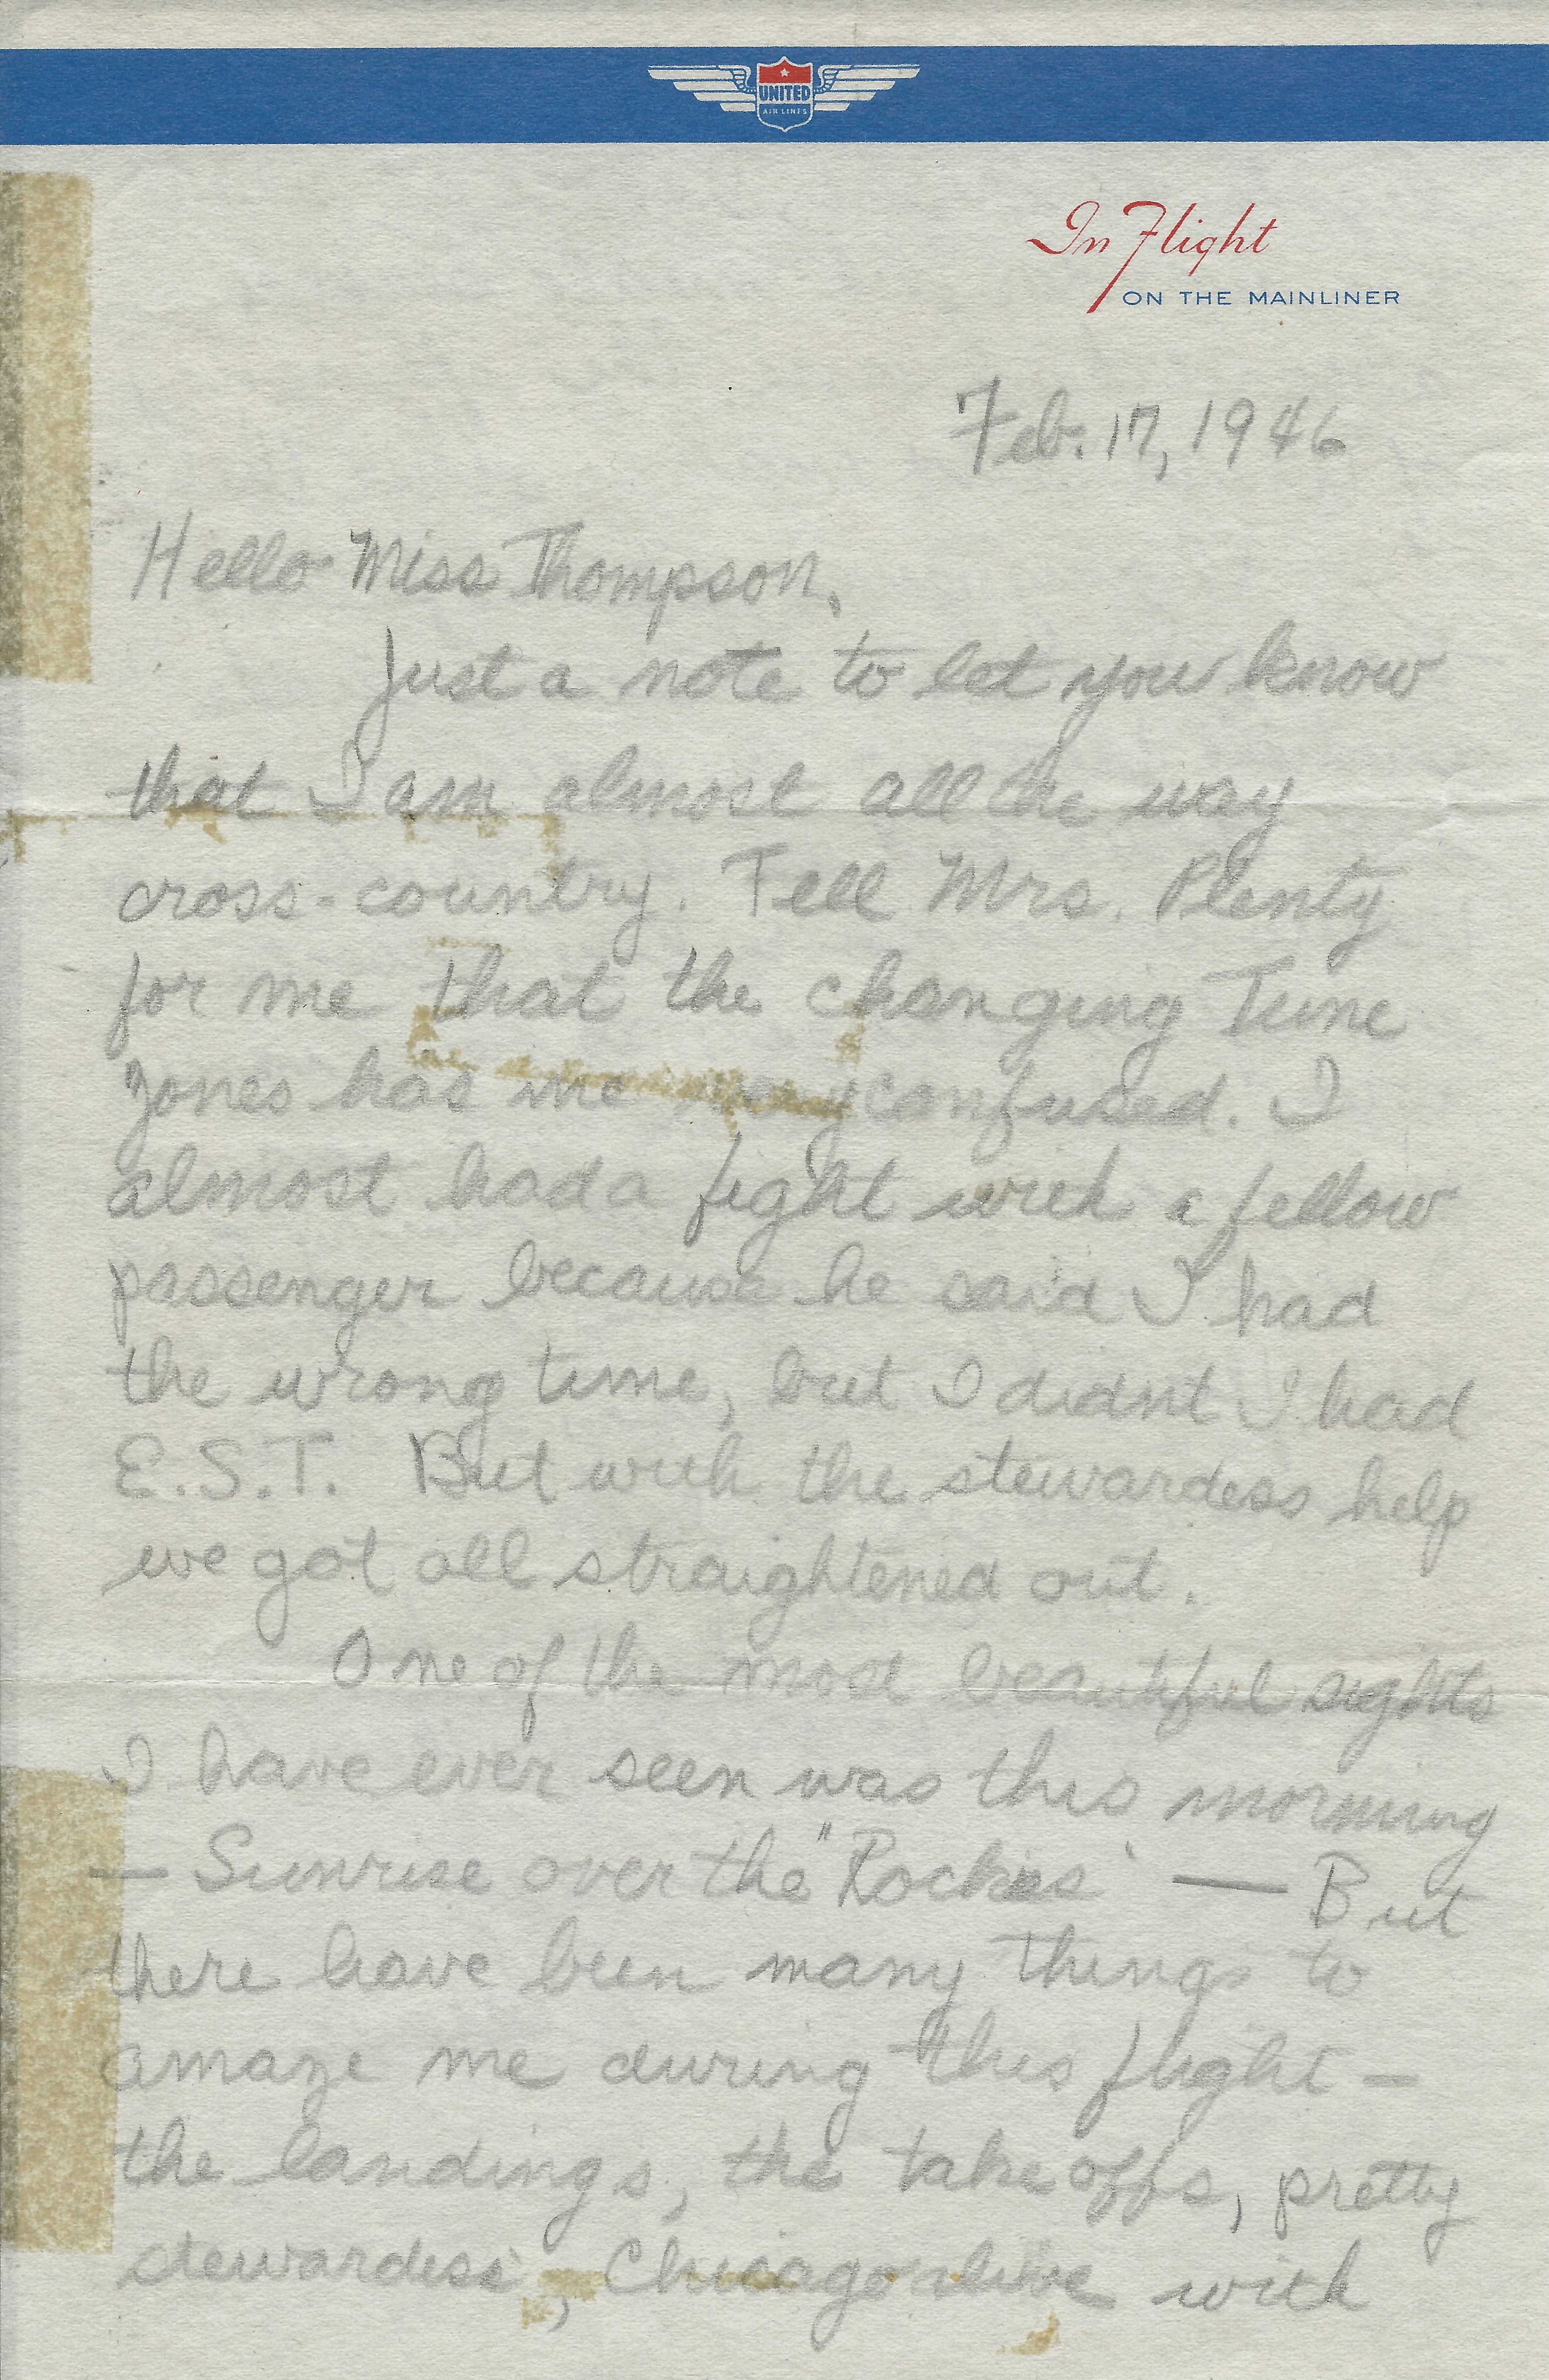 UNITED
AIR LINES
In Flight
ON THE MAINLINER
Feb. 17, 1946
Hello Miss Thompson,
Just a note to let you know
that I am almost all the way
cross-country. Tell Mrs. Plenty
for me that the changing Time
Zones has me very confused. I
almost had a fight with a fellow
passenger because he said I had
the wrong time, but I didnt I had
E.S.T. But with the stewardess help
we got all straightened out.
One of the most beautiful sights
I have ever seen was this morning
— Sunrise over the "Rockies" — But
there have been many things to
amaze me during this flight —
the landings, the take offs, pretty
stewardess, Chicago alive with